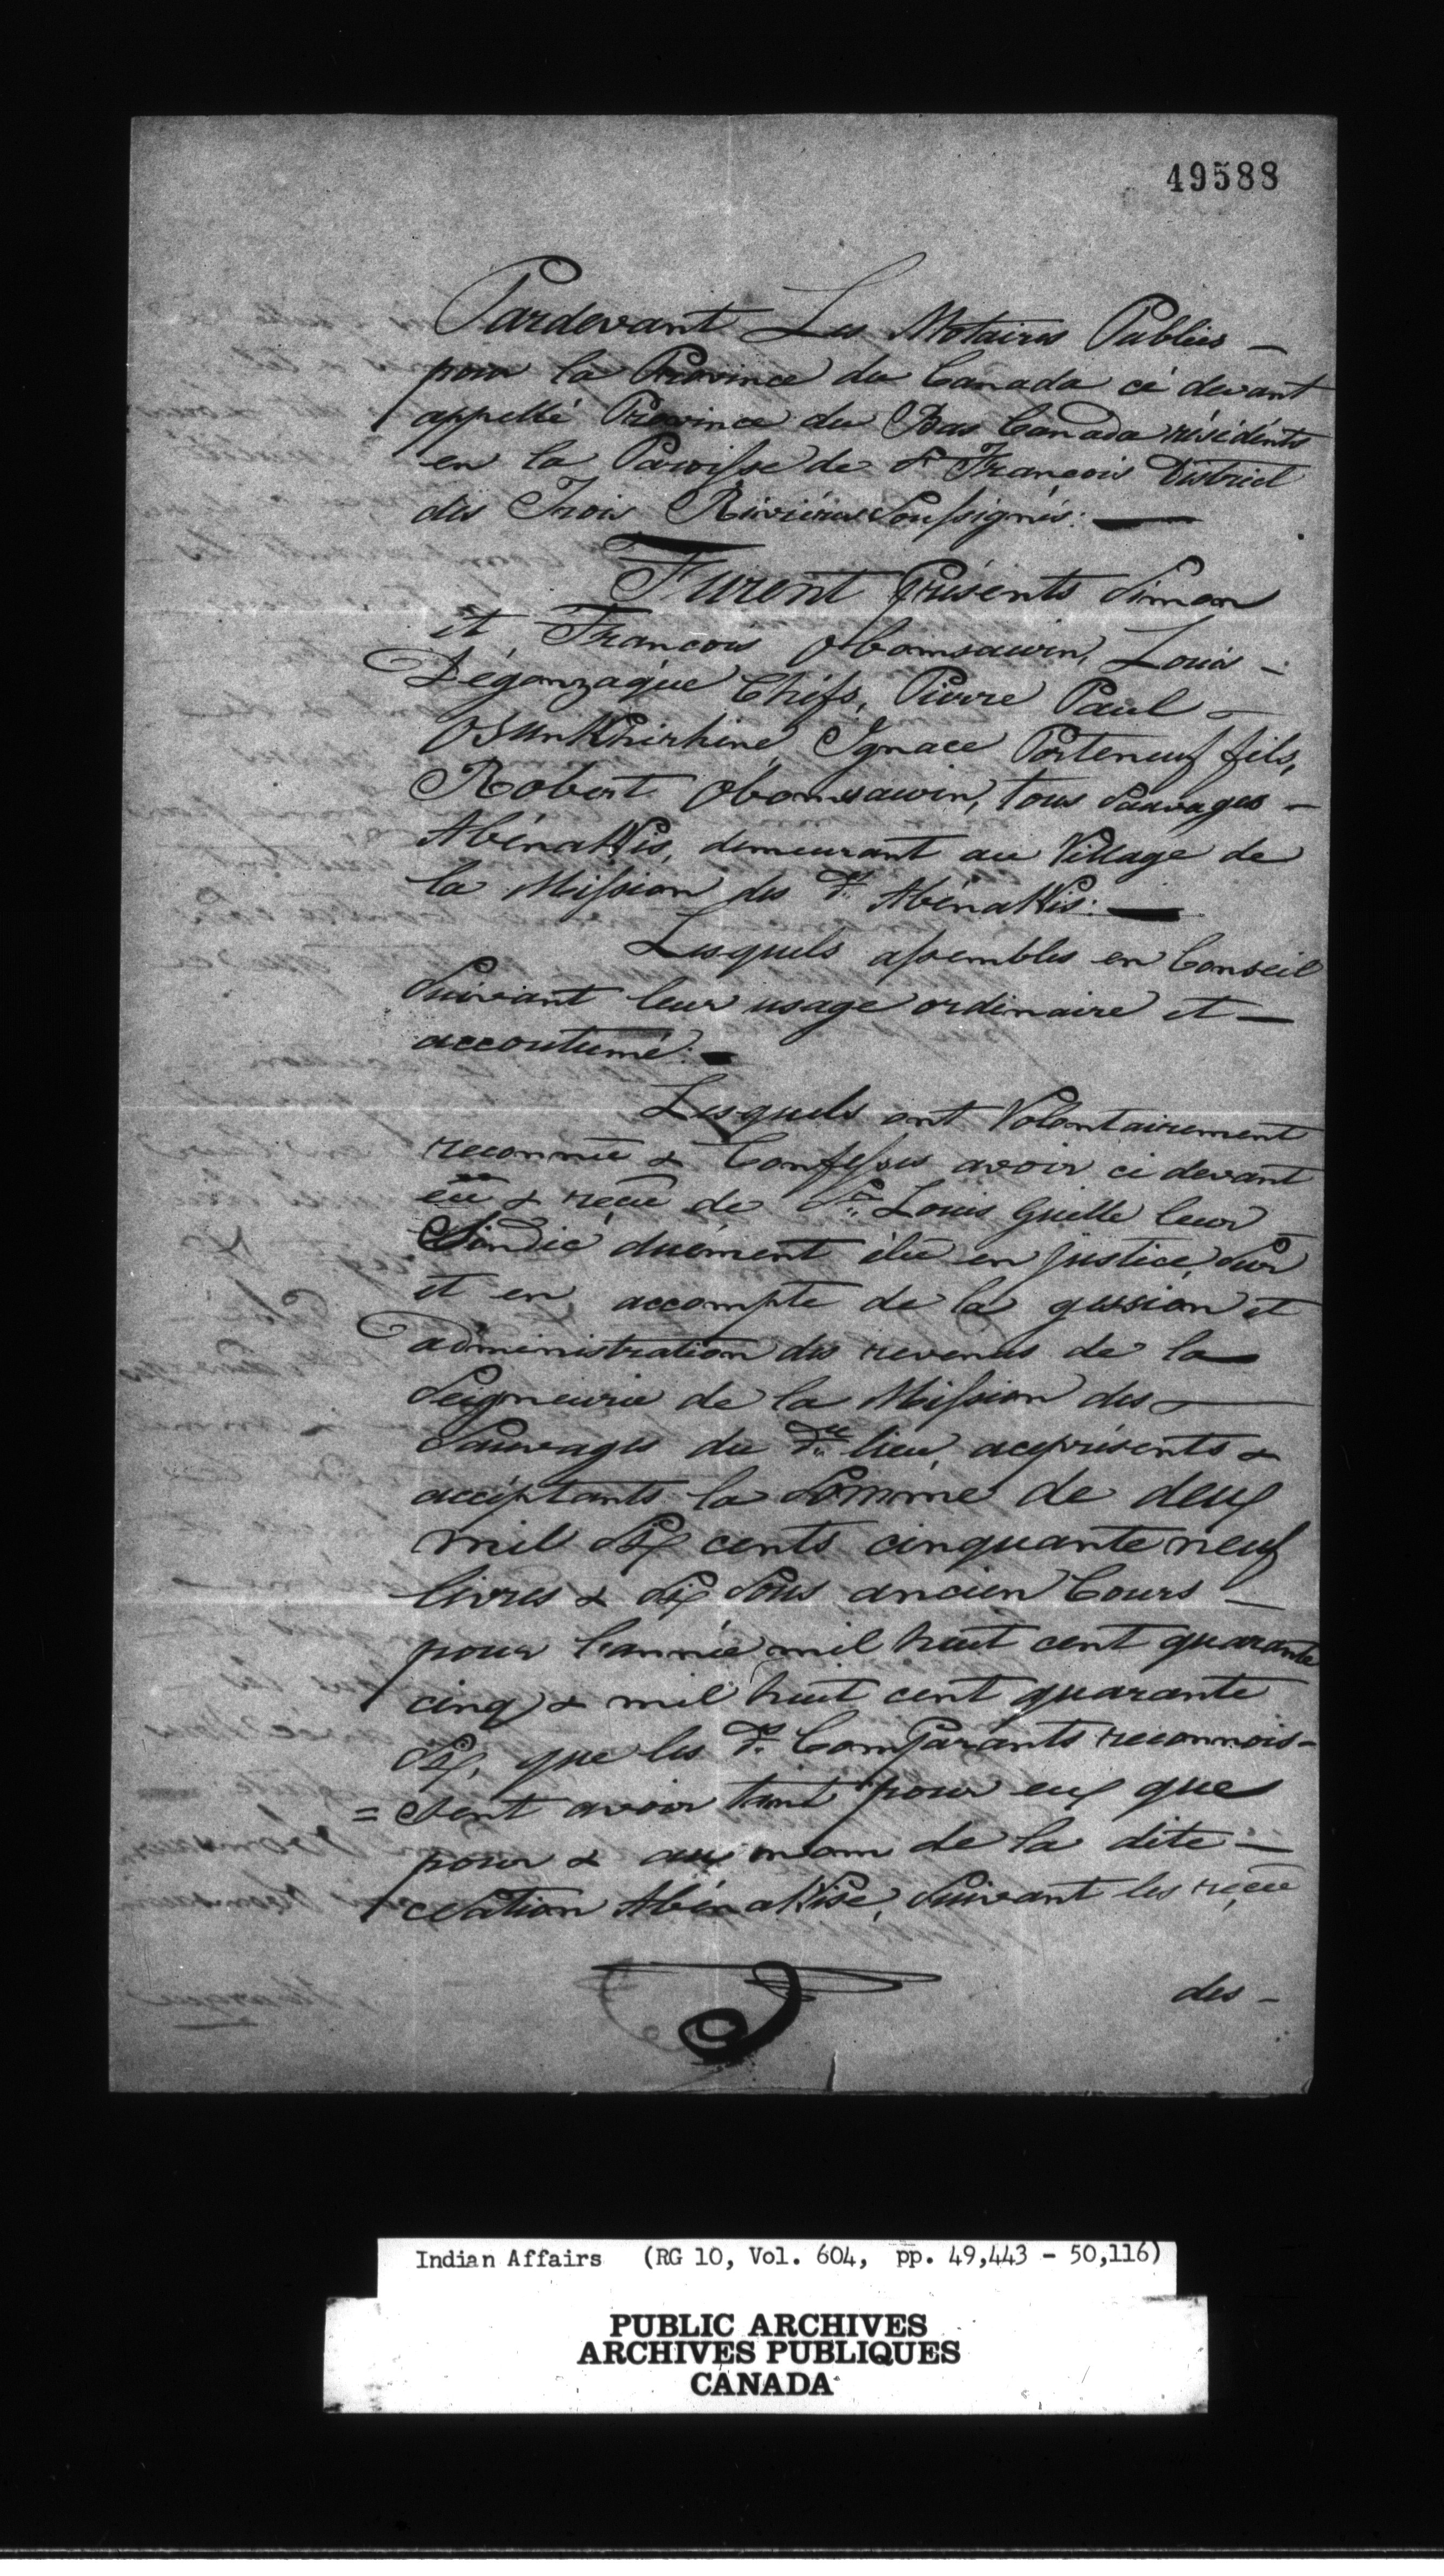 49588
Pardevant Les Notaires Publics —
pour la Province du Canada ci devant
appellé Province du Bas Canada résidents
en la Paroisse de St François District
des Trois Rivières Soussignés: —
Furent Présents Simon
et François Obomsawin, Louis —
Dégonzaque Chefs, Pierre Paul —
Osunkhirhine, Ignace Porteneuf fils,
Robert Obomsawin, tous Sauvages —
AbénaKis, demeurant au Village de
la Mission des dts AbénaKis: —
Lesquels assembles en Conseil
Suivant leur usage ordinaire et —
accoutumé: —
Lesquels ont Volontairement
reconnu & Confesses avoir ci devant
eû & reçu de Sr Louis Guille leur
Sindic duement élu en justice, sur
et en accompte de la gession et
administration des revenus de la
Seigneurie de la Mission des —
Sauvages du dit lieu, aceprésents &
acceptants la Somme de deux
mil six cents cinquante neuf
livres & dix Sous ancien Cours —
pour l'année mil huit cent quarante
cinq & mil huit cent quarante
Six, que les dts Comparants reconnois-
= sent avoir tant pour eux que
pour & au nom de la dite —
Nation AbénaKise, Suivant les reçu
des —
Indian Affairs (RG 10, Vol. 604, pp. 49,443 - 50,116)
PUBLIC ARCHIVES
ARCHIVES PUBLIQUES
CANADA